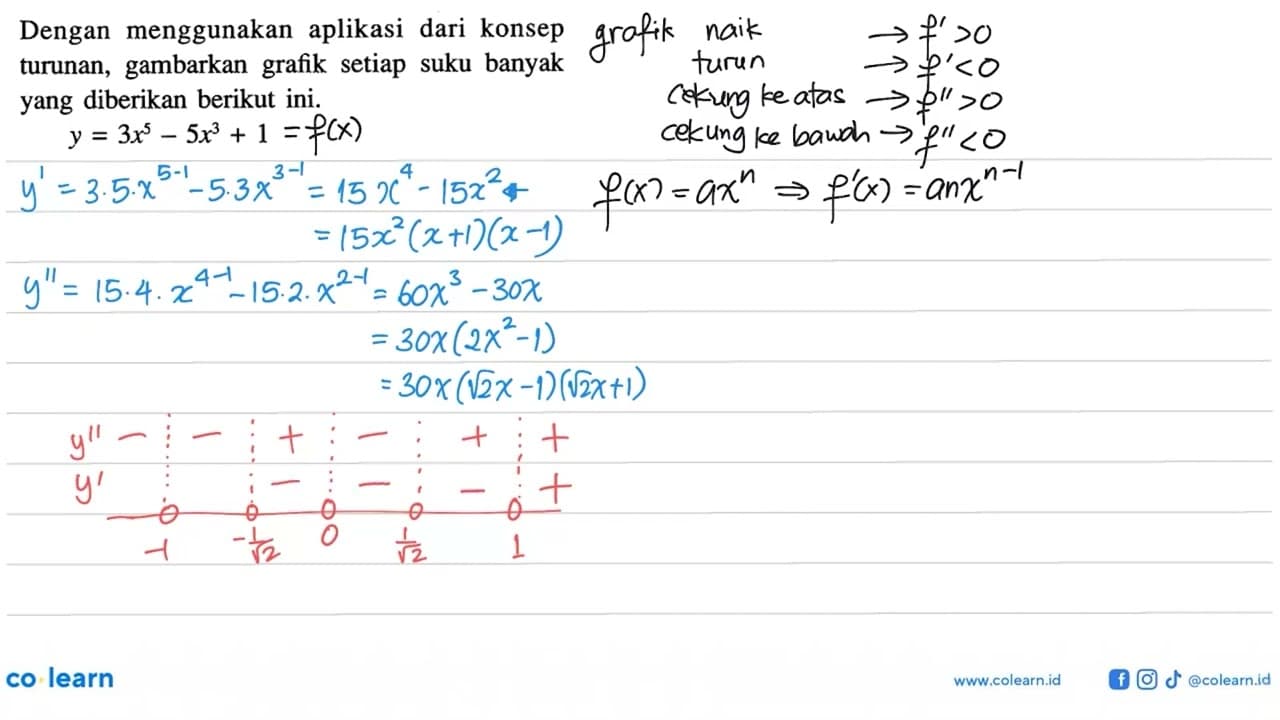 Dengan menggunakan aplikasi dari konsep
turunan, gambarkan grafik setiap suku banyak
yang diberikan berikut ini.
y = 3x⁵ – 5x³ + 1 = f(x)
grafik naik → f' > 0
turun → f' < 0
cekung ke atas → f'' > 0
cekung ke bawah → f'' < 0
f(x) = axⁿ ⇒ f'(x) = anxⁿ⁻¹
y' = 3.5.x⁵⁻¹ – 5.3x³⁻¹ = 15x⁴ – 15x²
= 15x²(x+1)(x–1)
y'' = 15.4.x⁴⁻¹ – 15.2.x²⁻¹ = 60x³ – 30x
= 30x(2x²–1)
= 30x(√2x–1)(√2x+1)
y'' – – + – + +
y' – – – +
-1 -1/√2 0 1/√2 1
co learn
www.colearn.id @colearn.id